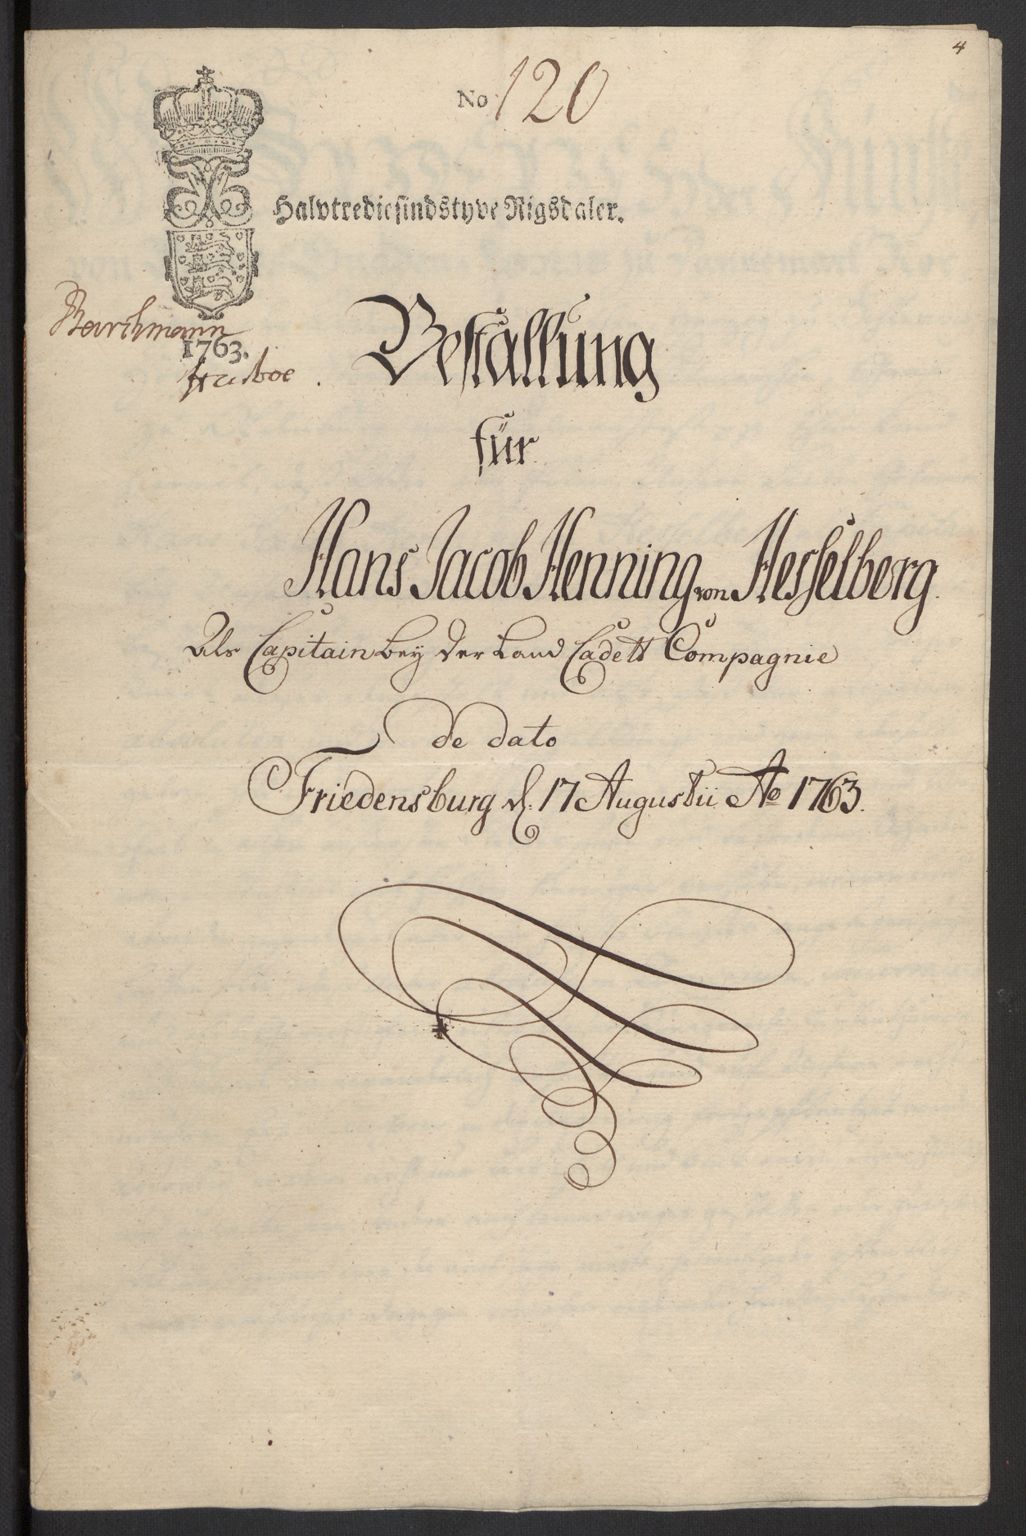 4
No 120
Halvtrediesindstyve Rigsdaler.
1763.
Bestallung
für
Hans Jacob Henning von Hesselberg.
Als Capitain bey der Land Cadett Compagnie
de dato
Friedensburg d. 17 Augustii Ao 1763.